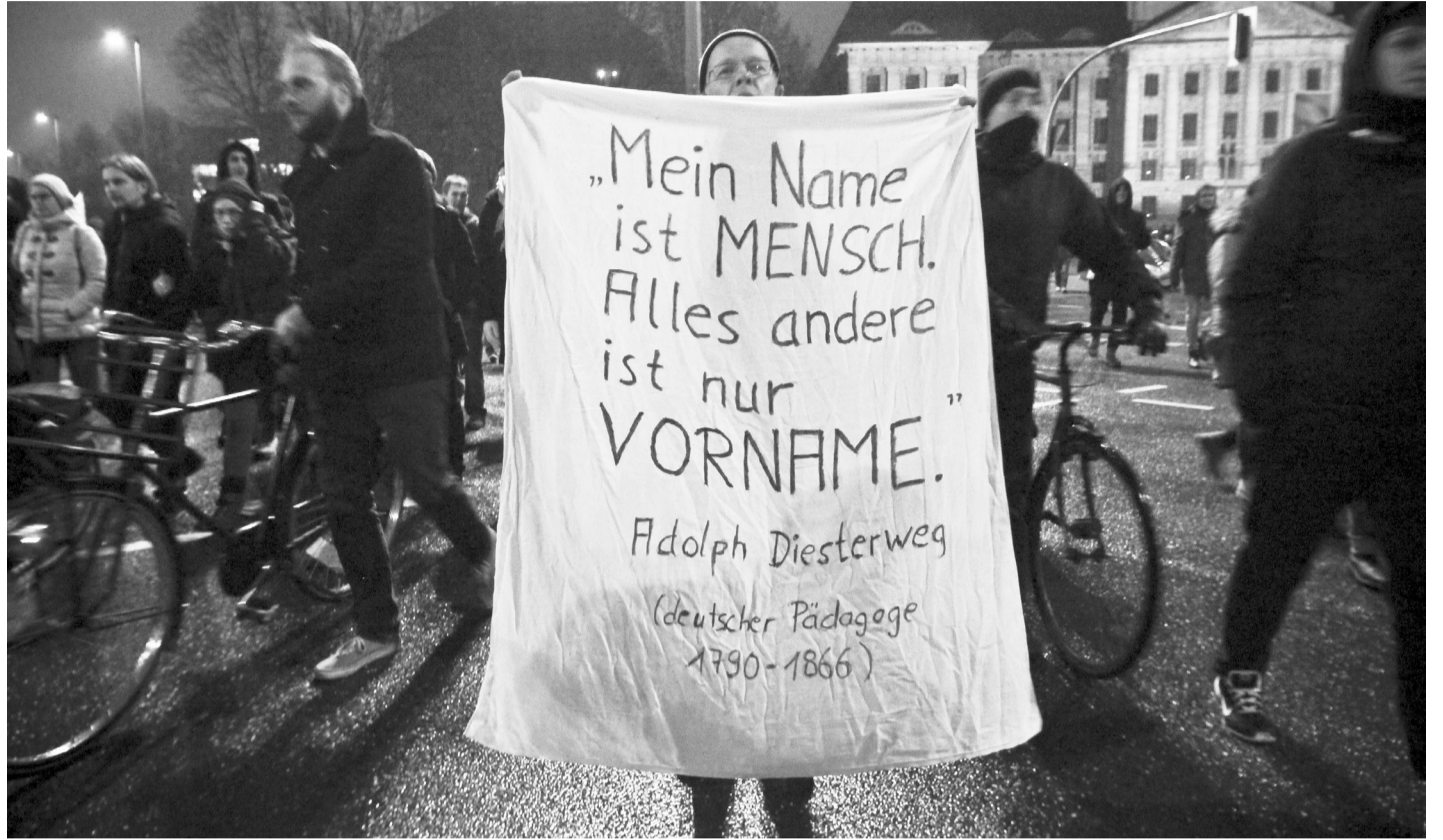 „Mein Name
ist MENSCH.
Alles andere
ist nur
VORNAME.”
Adolph Diesterweg
(deutscher Pädagoge
1790-1866)